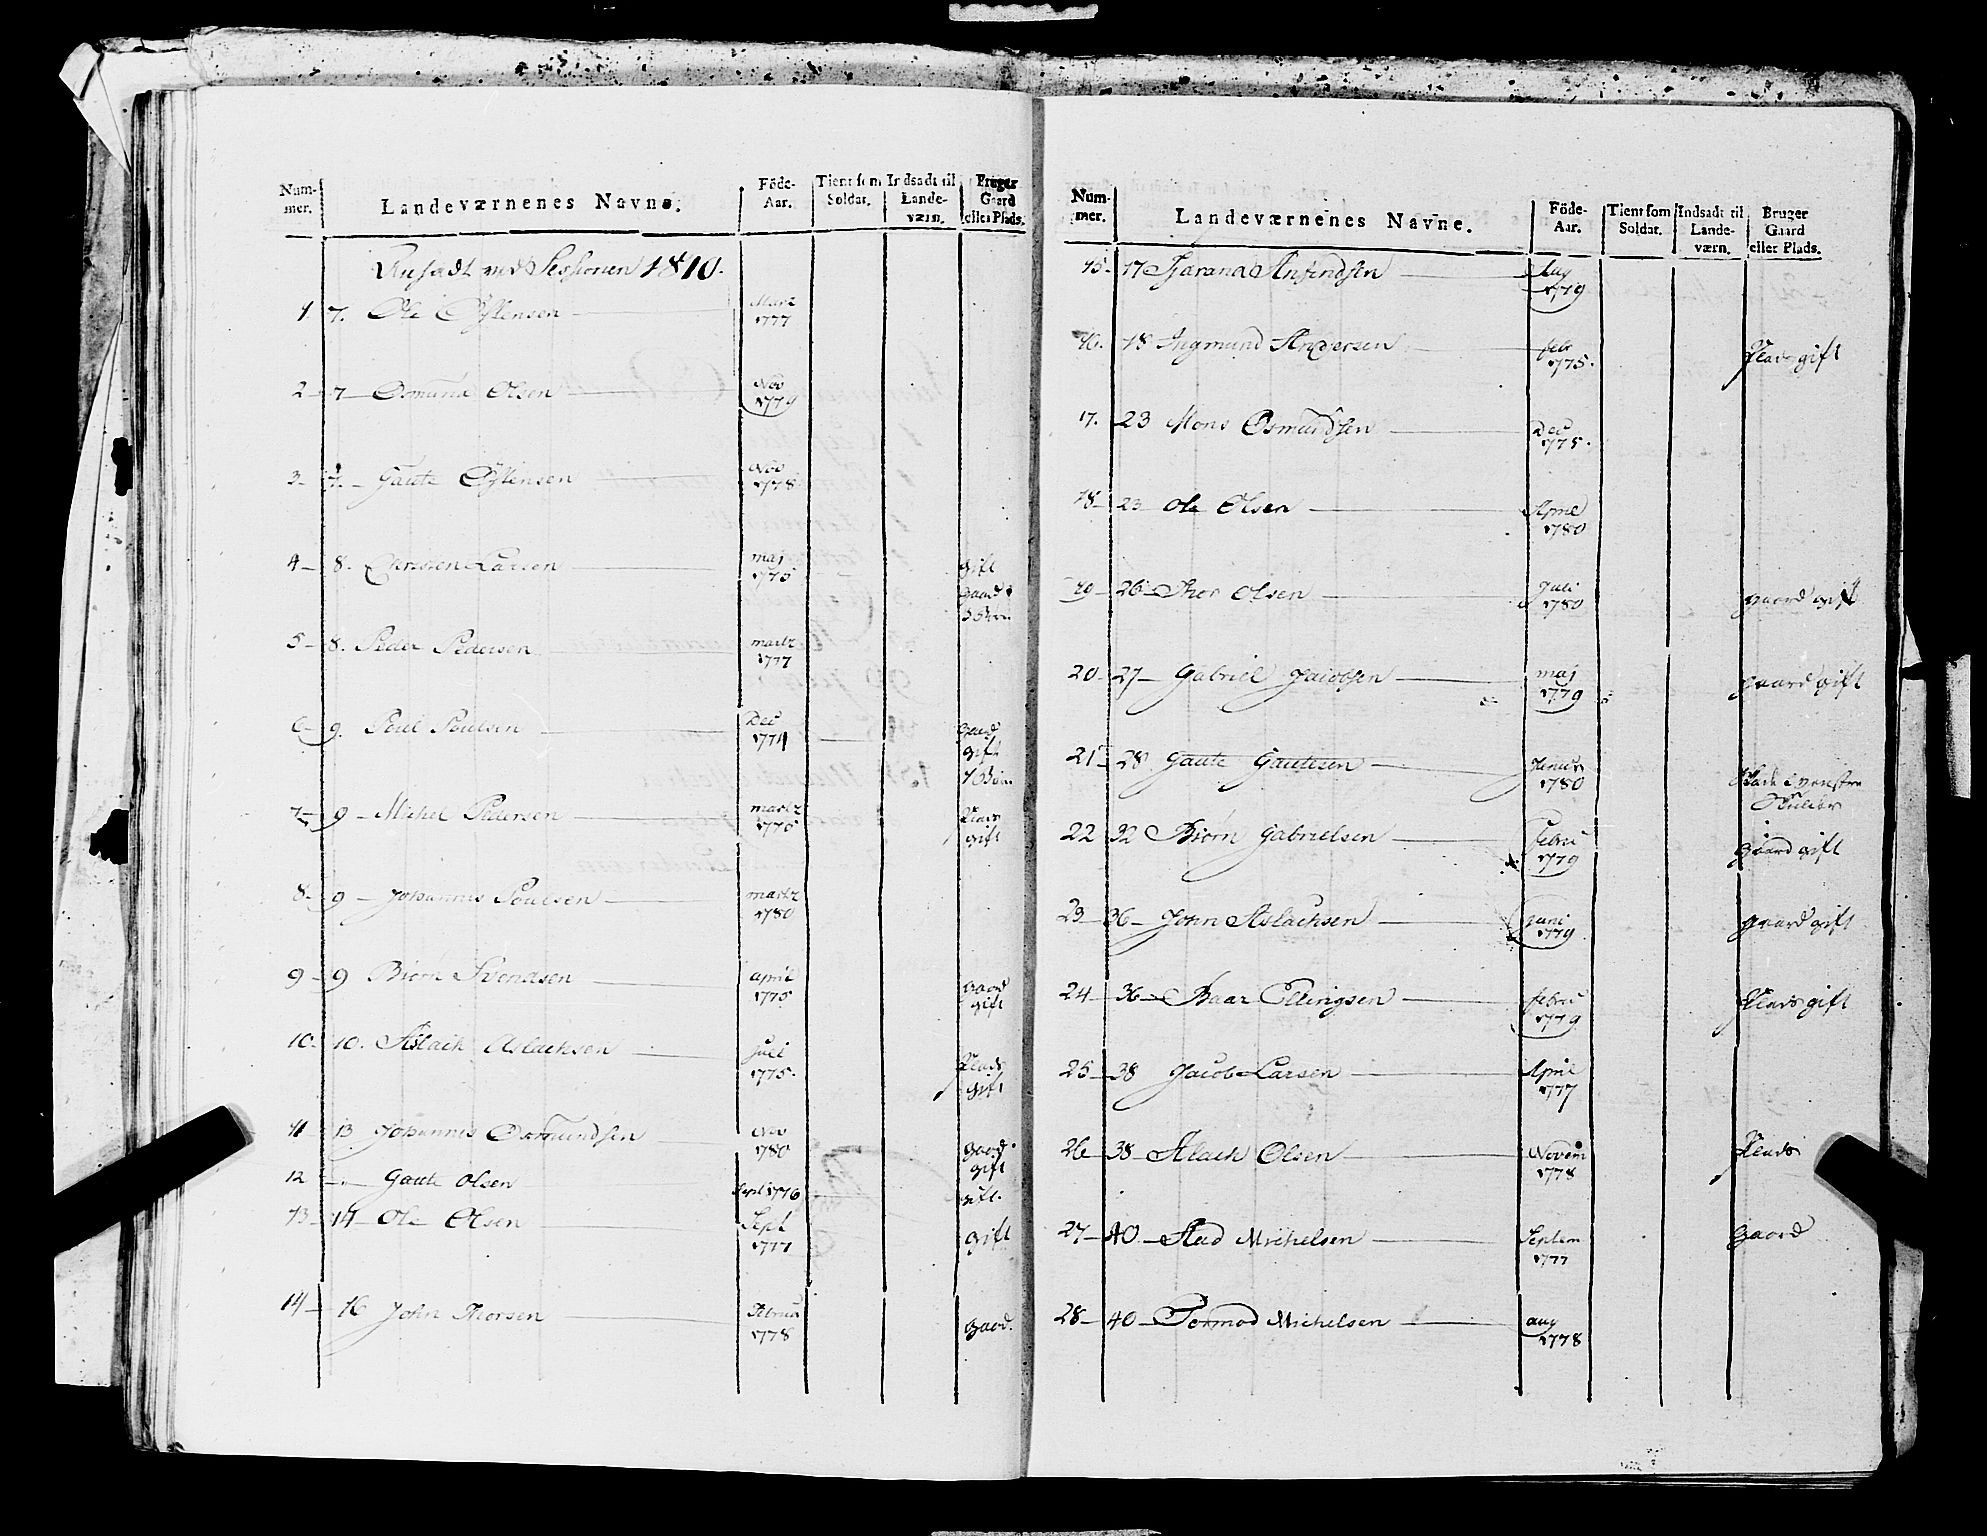 Num-
mer.
Landeværnenes Navne.
Föde-
Aar.
Tient som
Soldat.
Indsadt til
Lande-
værn.
Bruger
Gaard
eller Plads.
Indsadt ved Sessionen 1810.
1 7. Ole Østensen Martz 1777
2 - 7 - Osmund Olsen Nov 1779
3 - 7. - Gaute Østensen Nov 1778
4 - 8. Christen Larsen maj 1775 gift Gaard
5 - 8. Peder Pedersen martz 1777
6 - 9. Poul Poulsen Dec 1774 Gaard gift 1 Børn
7 - 9 - Michel Pedersen martz 1775 Plads gift
8 - 9 - Johannes Poulsen martz 1780
9 - 9 Biørn Svendsen april 1775 Gaard gift
10 - 10. Aslach Aslachsen Juli 1775. Plads gift
11 - 13 Johannes Osmundsen Nov 1780 Gaard gift
12 - Gaute Olsen Sept 1776 gift.
13 - 14 - Ole Olsen Sept 1777 gift
14 - 16 John Thorsen Februa 1778 Gaard.
Num-
mer.
Landeværnenes Navne.
Föde-
Aar.
Tient som
Soldat.
Indsadt til
Lande-
værn.
Bruger
Gaard
eller Plads.
15 - 17 Anfindsen Aug 1779
16. 18 Ingmund Andersen febr 1775. Plads gift
17. 23 Mons Osmundsen Dec 1775.
18 - 23 Ole Olsen April 1780
19 - 26 - Thor Olsen Juli 1780 gaard gift
20 - 27 - Gabriel Jacobsen maj 1779 gaard gift
21 - 28 Gaute Gautesen Januar 1780
22 32 Biørn Gabrielsen Febru 1779 gaard gift
23 - 36 - John Aslachsen Juni 1779 gaard gift
24 - 36 - Baar Ellingsen febru 1779 Plads gift
25 - 38 Jacob Larsen April 1777
26 - 38 - Aslach Olsen Novem 1778 Plads
27 - 40 - Aad Michelsen Septem 1777 Gaard
28 - 40 - Tormod Michelsen aug 1778